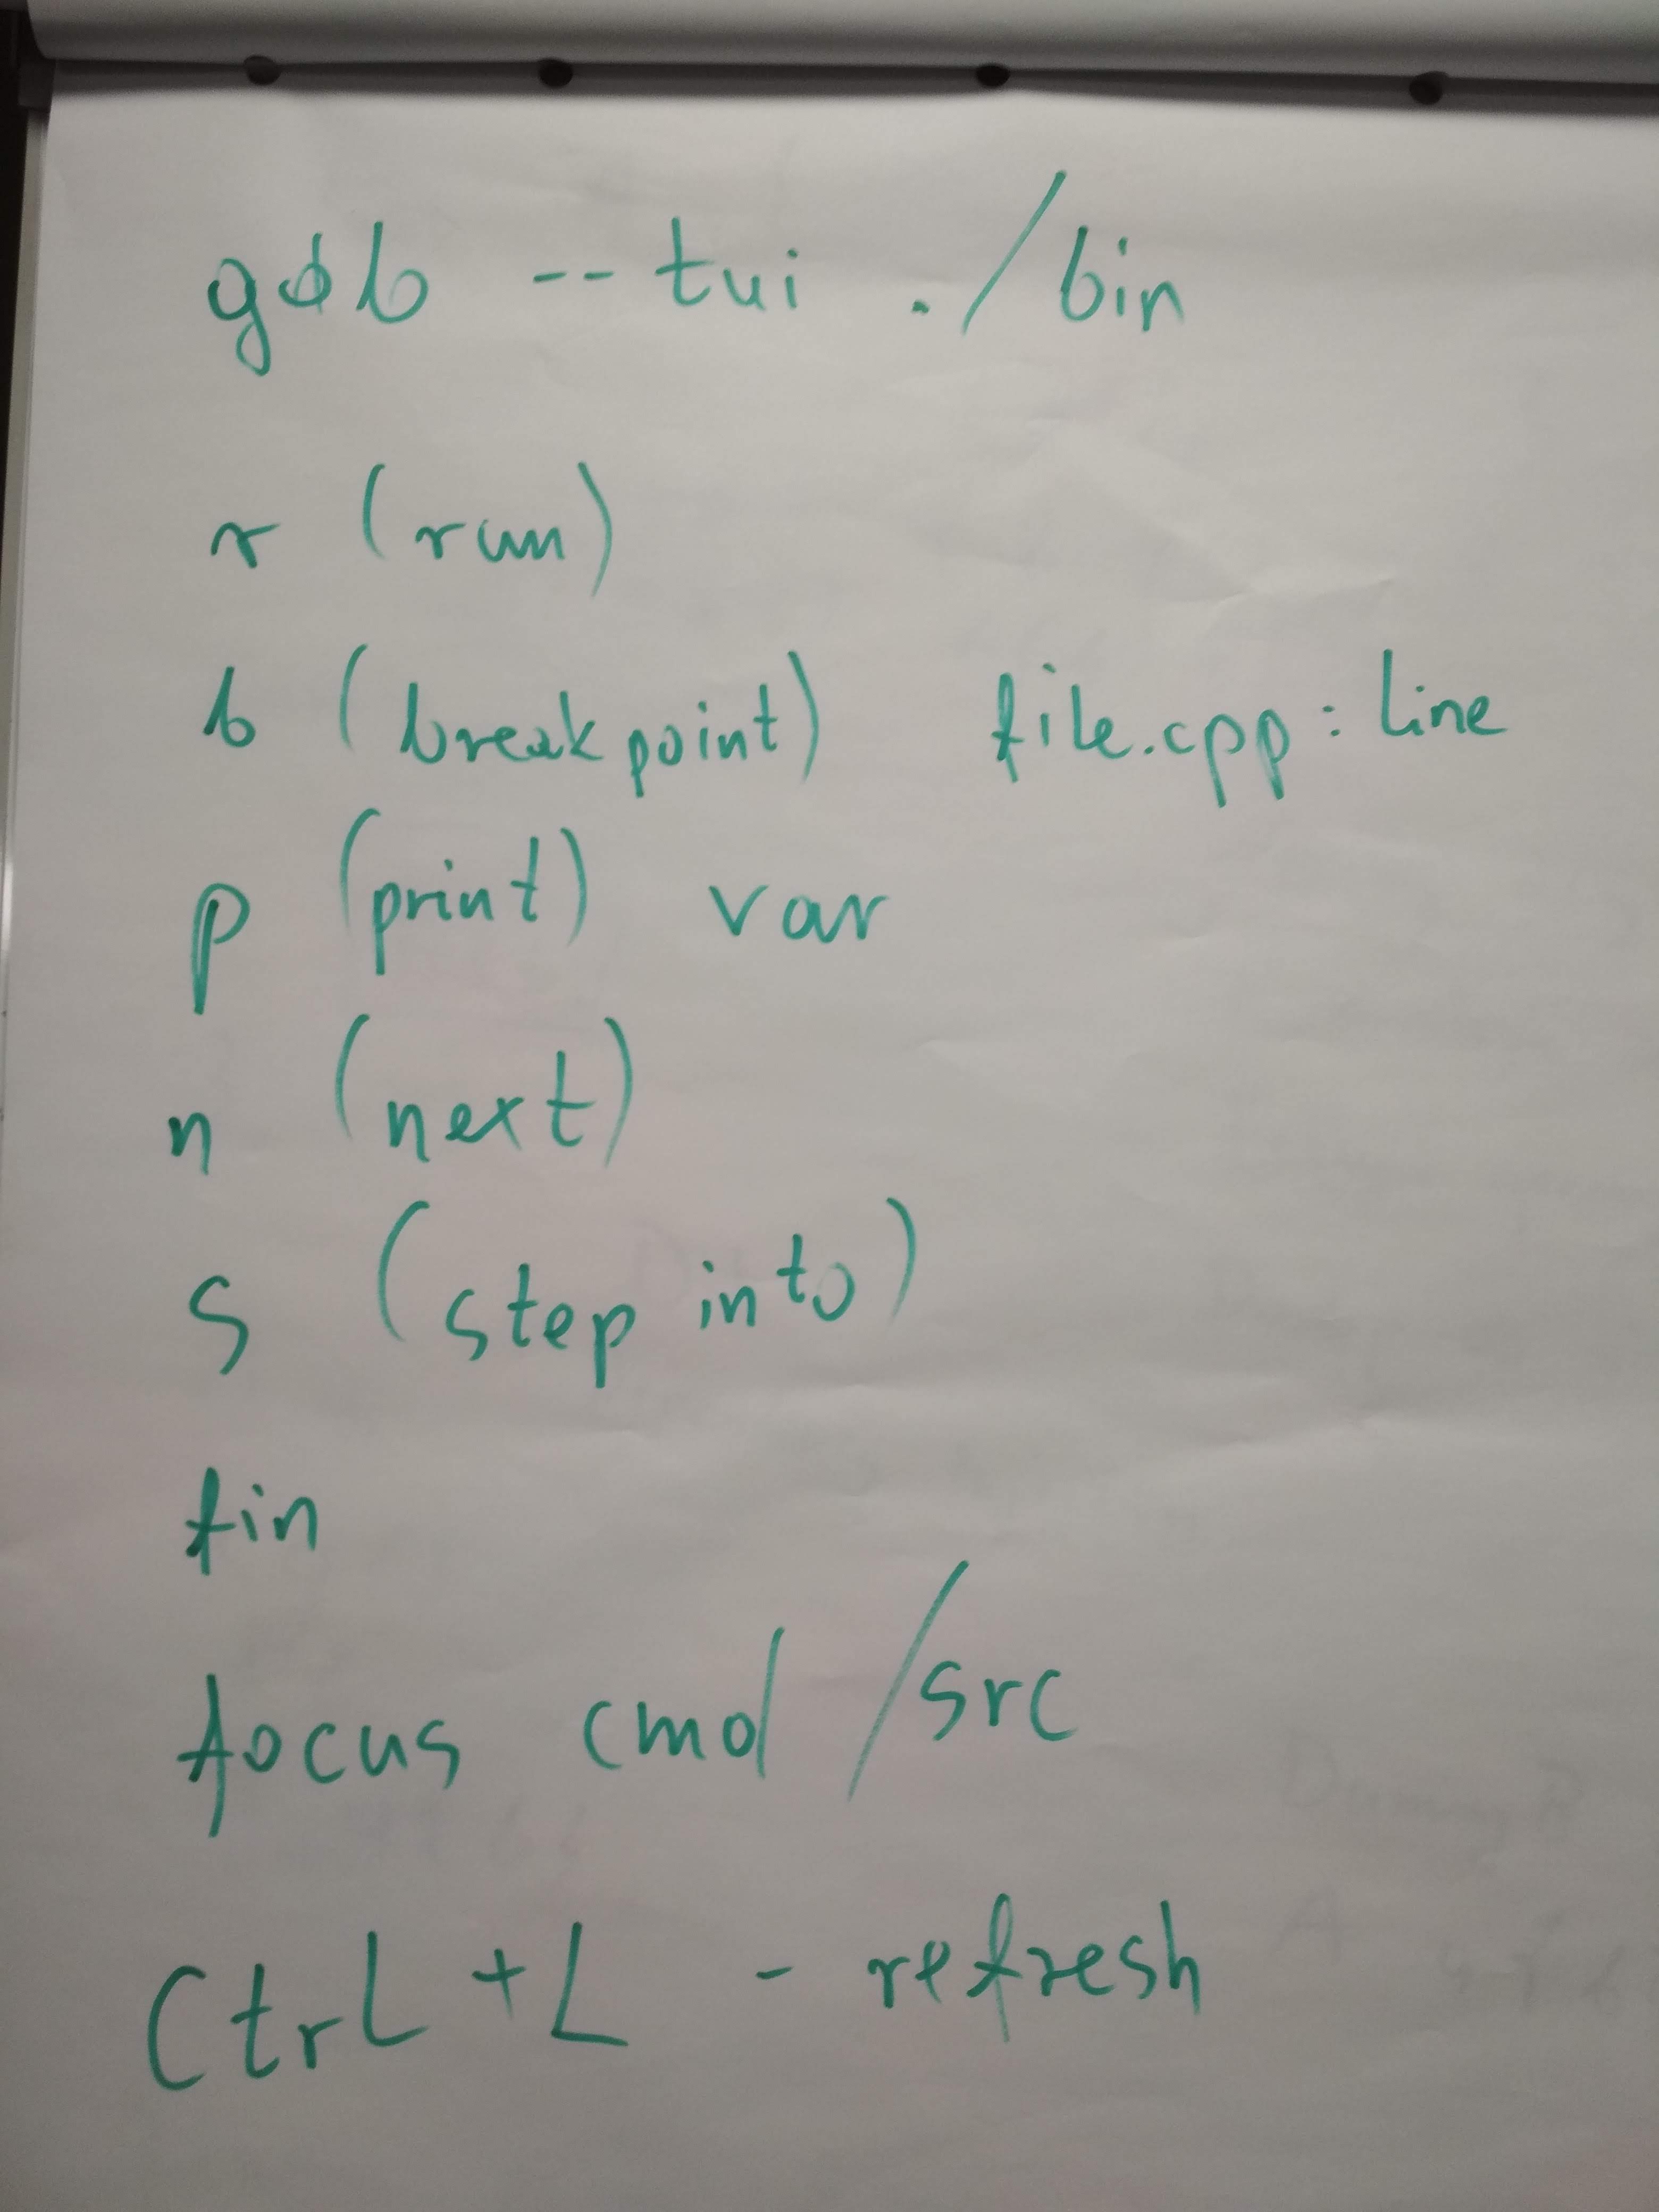 gdb --tui ./bin
r (run)
b (breakpoint) file.cpp:line
p (print) var
n (next)
s (step into)
fin
focus cmd/src
Ctrl+L - refresh